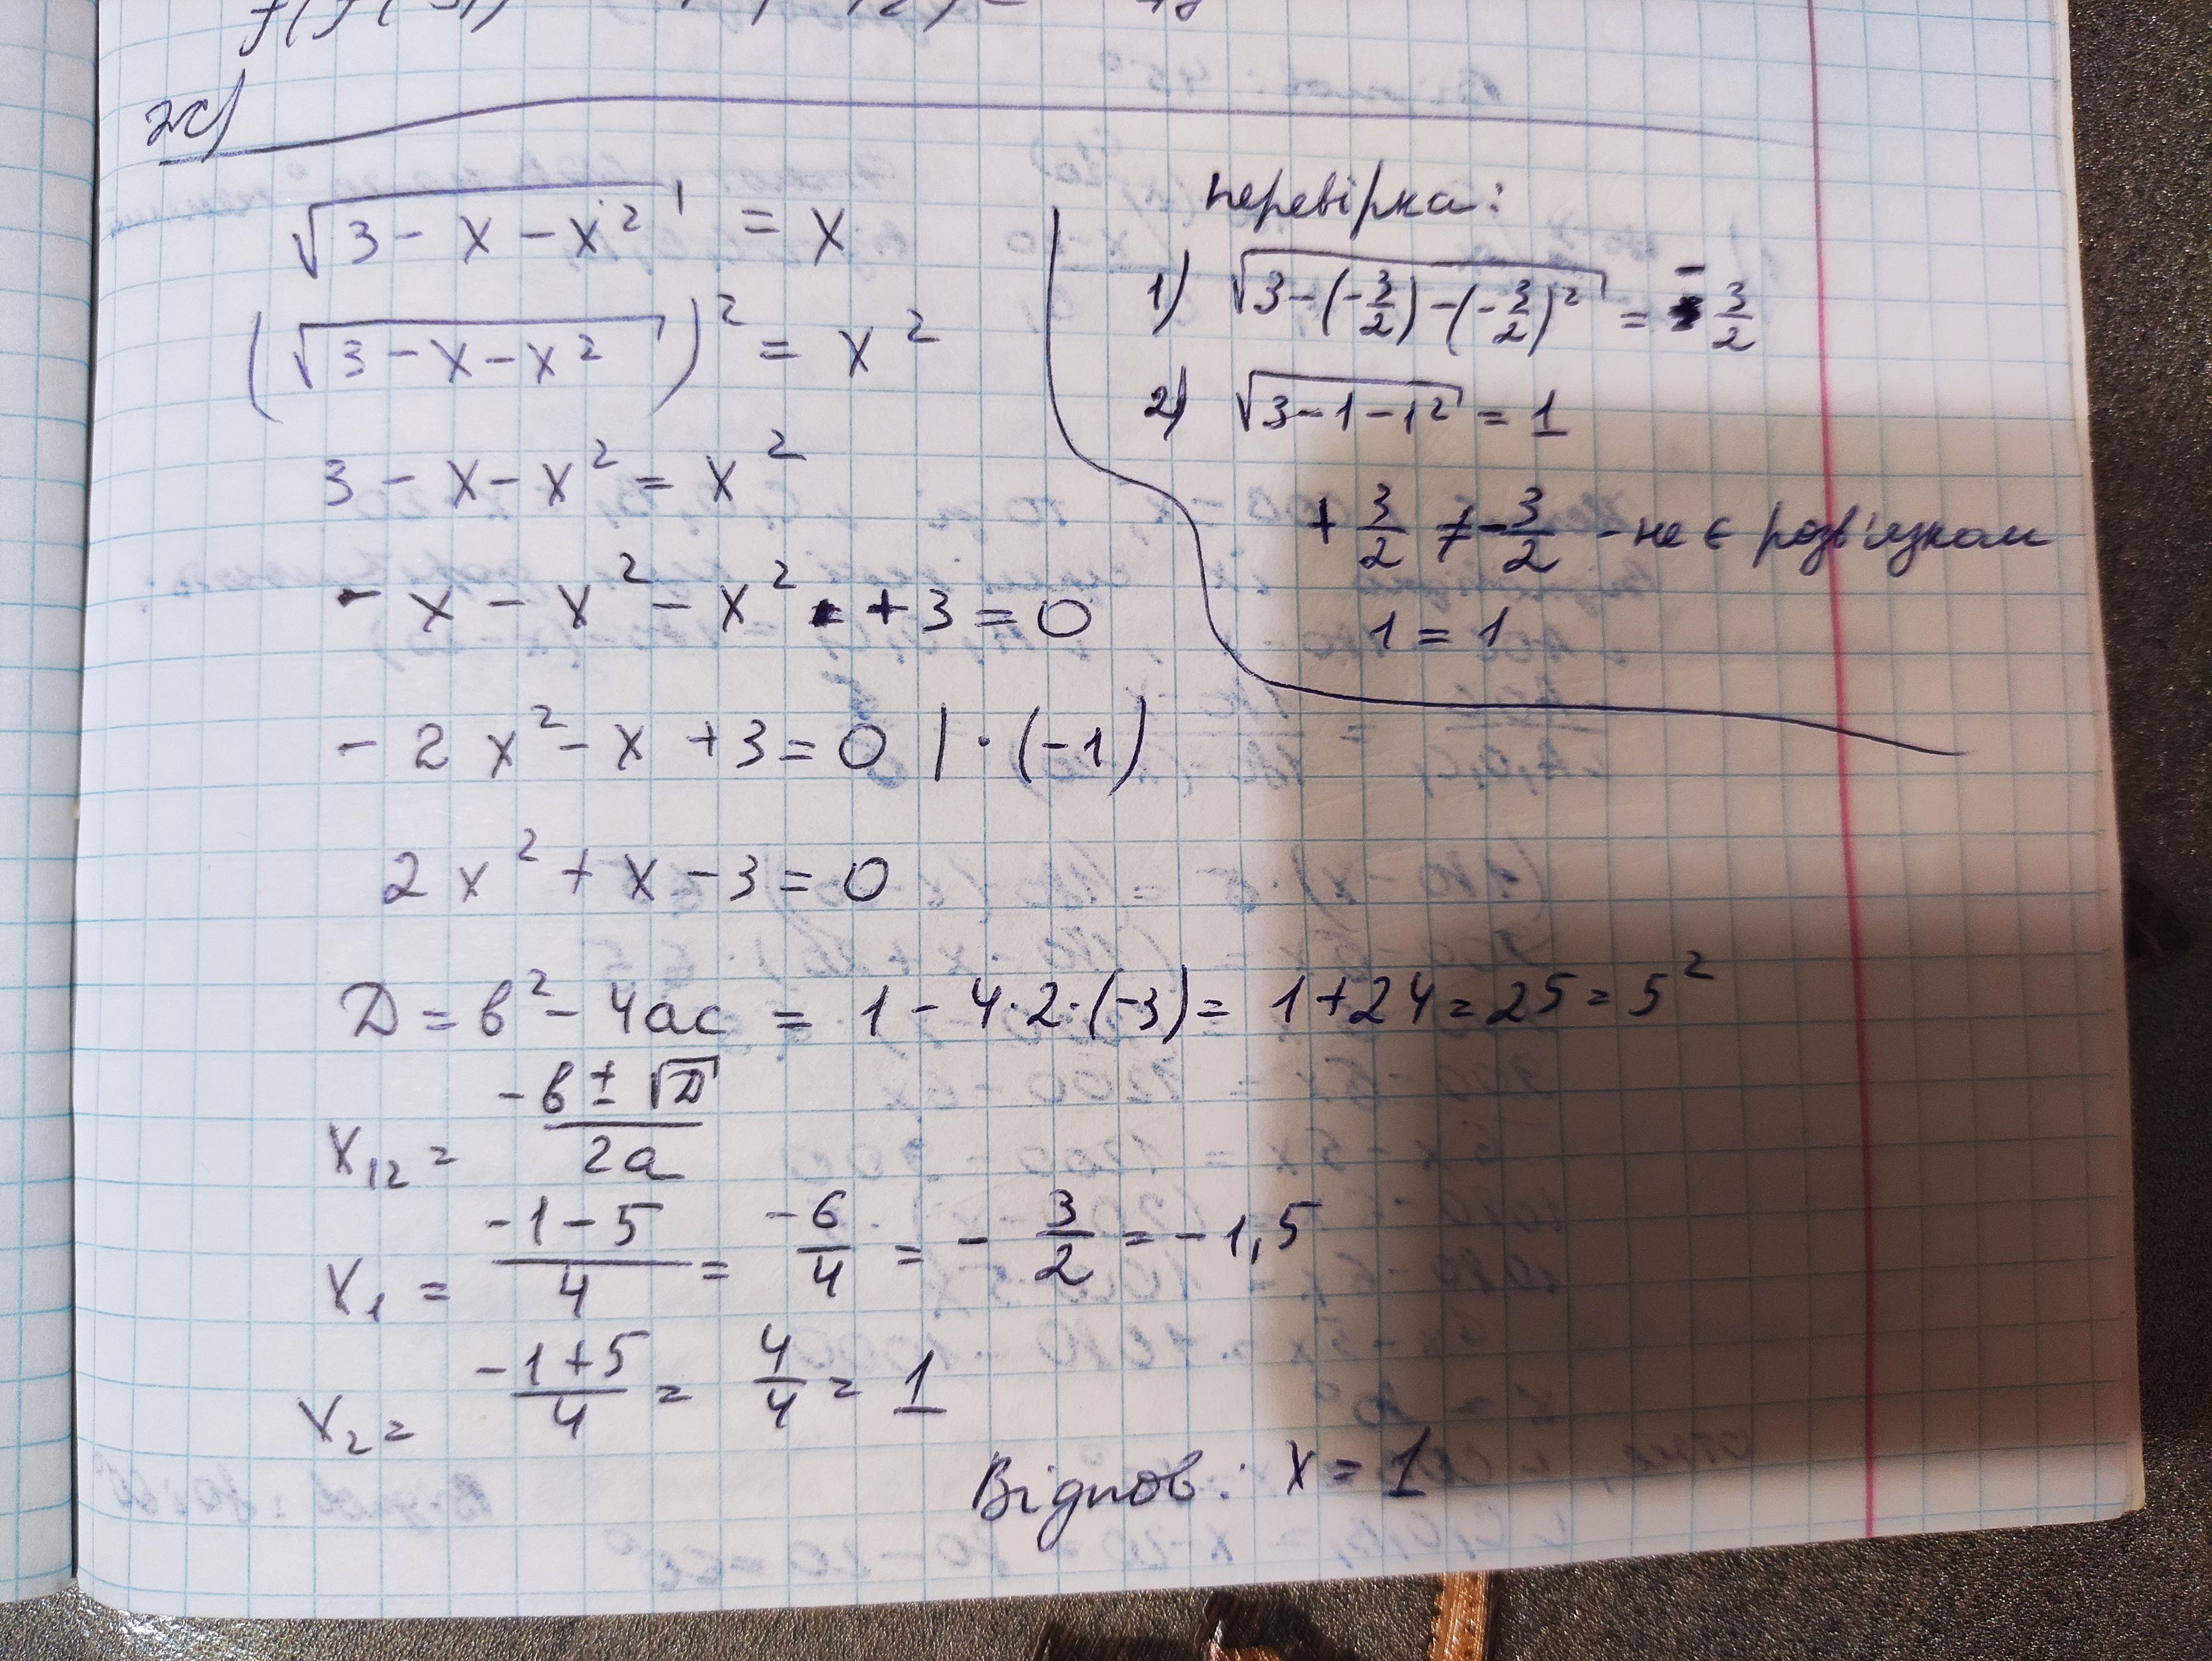 2c)
√(3 - x - x²) = x
(√(3 - x - x²))² = x²
3 - x - x² = x²
- x - x² - x² + 3 = 0
- 2x² - x + 3 = 0 | · (-1)
2x² + x - 3 = 0
D = b² - 4ac = 1 - 4·2·(-3) = 1 + 24 = 25 = 5²
x₁₂ = (-b ± √D)/(2a)
x₁ = (-1 - 5)/4 = -6/4 = - 3/2 = - 1,5
x₂ = (-1 + 5)/4 = 4/4 = 1
перевірка:
1) √(3 - (-3/2) - (-3/2)²) = - 3/2
2) √(3 - 1 - 1²) = 1
+ 3/2 ≠ - 3/2 - не є розв'язком
1 = 1
Відпов: x = 1